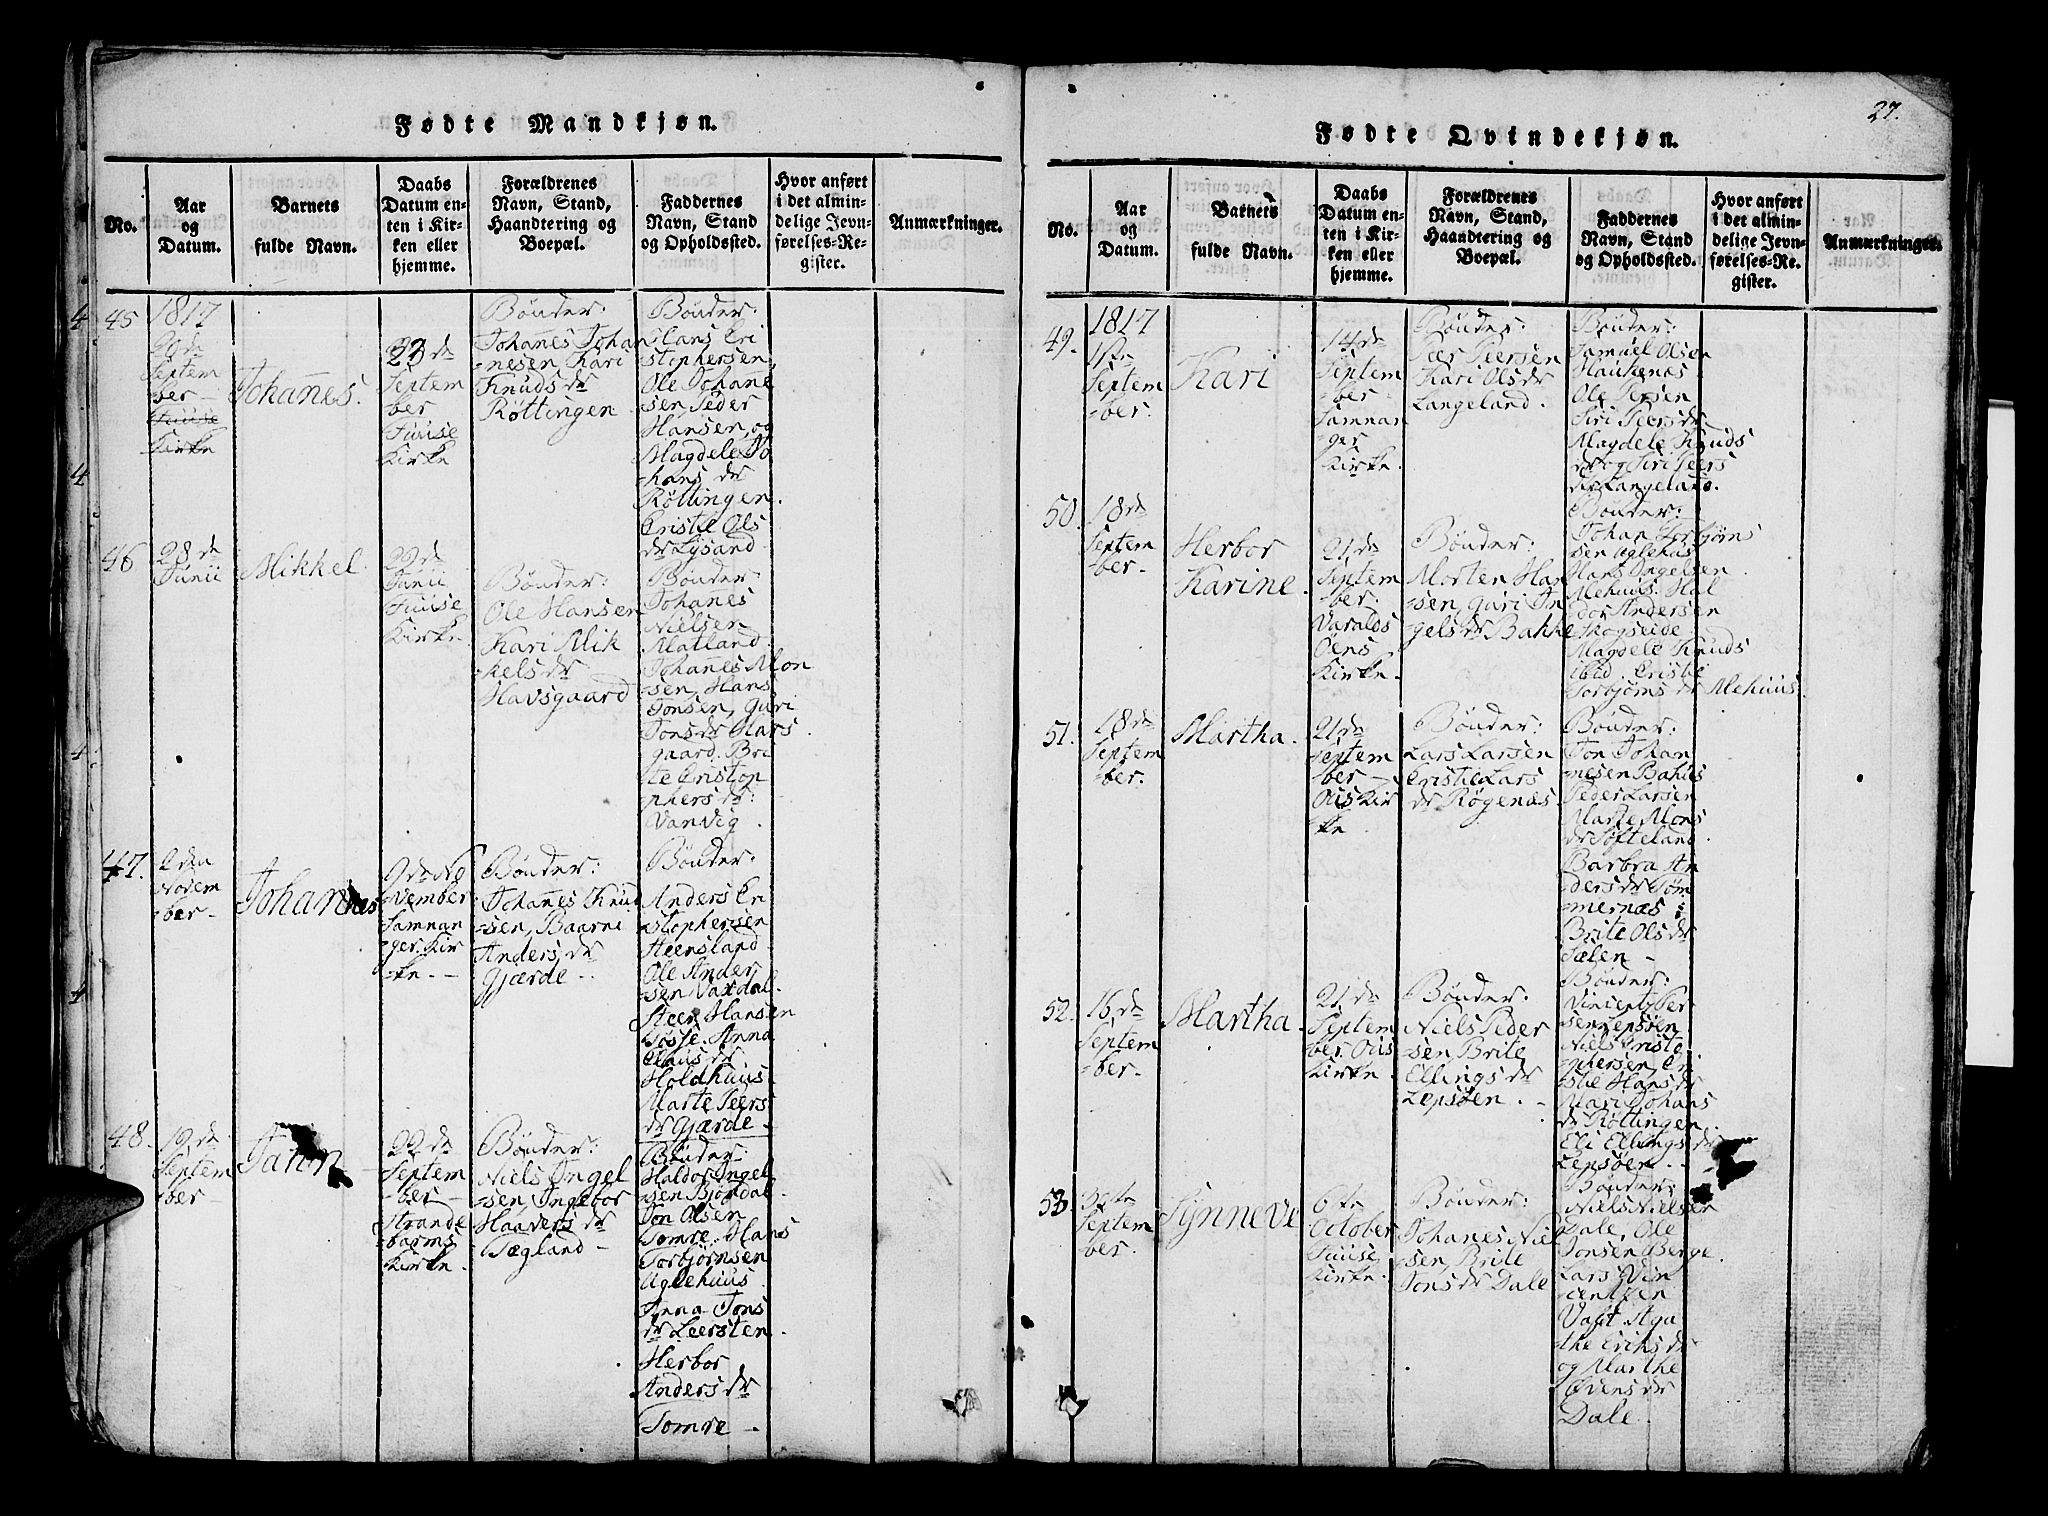 27.
Fødte Mandkjøn.
No.
Aar
og
Datum.
Barnets
fulde Navn.
Daabs
Datum en-
ten i Kir-
ken eller
hjemme.
Forældrenes
Navn, Stand,
Haandtering og
Boepæl.
Faddernes
Navn, Stand
og Opholdssted.
Hvor anført
i det almin-
delige Jevn-
førelses-Re-
gister.
Anmærkninger.
45
1817
20 de
Septem
ber
Fuuse
Kirke
Johanes.
23 de
Septem
ber
Fuuse
Kirke
Bønder:
Johanes Johan
nesen Kari
Knuds dr
Røttingen
Bønder:
Hans Cri
stophersen,
Ole Johane
sen Peder
Hansen, og
Magdele Jo
hans dr
Røttingen.
Cristie Ols
dr Lysand
46
28 de
Junii
Mikkel
29 de
Junii
Fuuse
Kirke.
Bønder:
Ole Hansen
Kari Mik
kels dr
Havsgaard
Bønder:
Johanes
Nielsen
Matland.
Johanes Mon
sen, Hans
Jonsen, Guri
Jons dr Hars
gaard. Bri
te Cristop
phers dr:
Vanvig.
47.
2 den
Novem
ber
Johannes
9 de No
vember
Samnan
ger Kir
ke.
Bønder:
Johanes Knud
sen, Baarni
Anders dr
Gjærde.
Bønder:
Anders Cri
stophersen
Steensland
Ole Ander
sen Vaxdal.
Steen Hansen
Tøsse. Anna
Claus dr
Holdhuus.
Marte Peers
dr Gjærde.
48.
19 de
Septem
ber
22 de
Septem
ber
Strande
barms
Kirke.
Bønder:
Niels Ingel
sen, Ingebor
Haavers dr
Tægland
Bønder
Haldor Ingel
sen Bjørdal.
Jon Olsen
Tomre. Hans
Torbjørnsen
Aglehuus
Anna Jons
dr Leersten.
Herbor
Anders dr
Tomre
Fødte Qvindekjøn.
No.
Aar
og
Datum.
Barnets
fulde Navn.
Daabs
Datum en-
ten i Kir-
ken eller
hjemme.
Forældrenes
Navn, Stand,
Haandtering og
Boepæl.
Faddernes
Navn, Stand
og Opholdssted.
Hvor anført
i det almin-
delige Jevn-
førelses-Re-
gister.
Anmærkninger.
49.
1817
Septem
ber.
Kari
14 de
Septem
ber
Samnan
ger
Kirke.
Bønder:
Peer Peersen
Kari Ols dr
Langeland.
Bønder:
Samuel Olsen
Haukenæs.
Ole Persen
Siri Peers dr
Magdele Knuds
dr og Siri Peers
dr Langeland.
50.
18 de
Septem
ber.
Herbor
Karine.
21 de
Septem
ber.
Varalds
Øens
Kirke.
Bønder:
Morten Han
sen, Guri In
gels dr Bakke
Bønder:
Johan Torbjørns
sen Aglehus
Hans Ingelsen
Alehuus. Hal
dor Andersen
Skogseide
Magdele Knuds
ibid. Cristie
Torbjørns dr Alehuus.
51.
18 de
Septem
ber.
Martha.
21 de
Septem
ber
Ous Kir
ke.
Bønder:
Lars Larsen
Cristie Lars
dr Røgenæs.
Bønder:
Jon Johan
nesen Bahus
Peder Larsen
Marte Mons
dr Softeland.
Barbra An
ders dr Tøm
mernæs:
Brite Ols dr
Sælen
52.
16 de
Septem
ber.
Martha.
21 de
Septem
ber. Ous
Kirke.
Bønder:
Niels Peder
sen Brite
Ellings dr
Lepsøen.
Bønder:
sen Lepsøen
Niels Cristo
phersen, Cri
stie Hans dr
Mari Johans
dr Røttingen.
Eli Ellings dr
Lepsøen.
53.
Septem
ber.
Synneve
6 te
October
Fuuse
Kirke.
Bønder:
Johanes Niel
sen, Brite
Jons dr Dale
Bønder:
Niels Nielsen
Dale, Ole
Jonsen Berge.
Lars Vin
centzen
Vaft. Aga
the Eriks dr
og Marthe
Ovens dr
Dale.